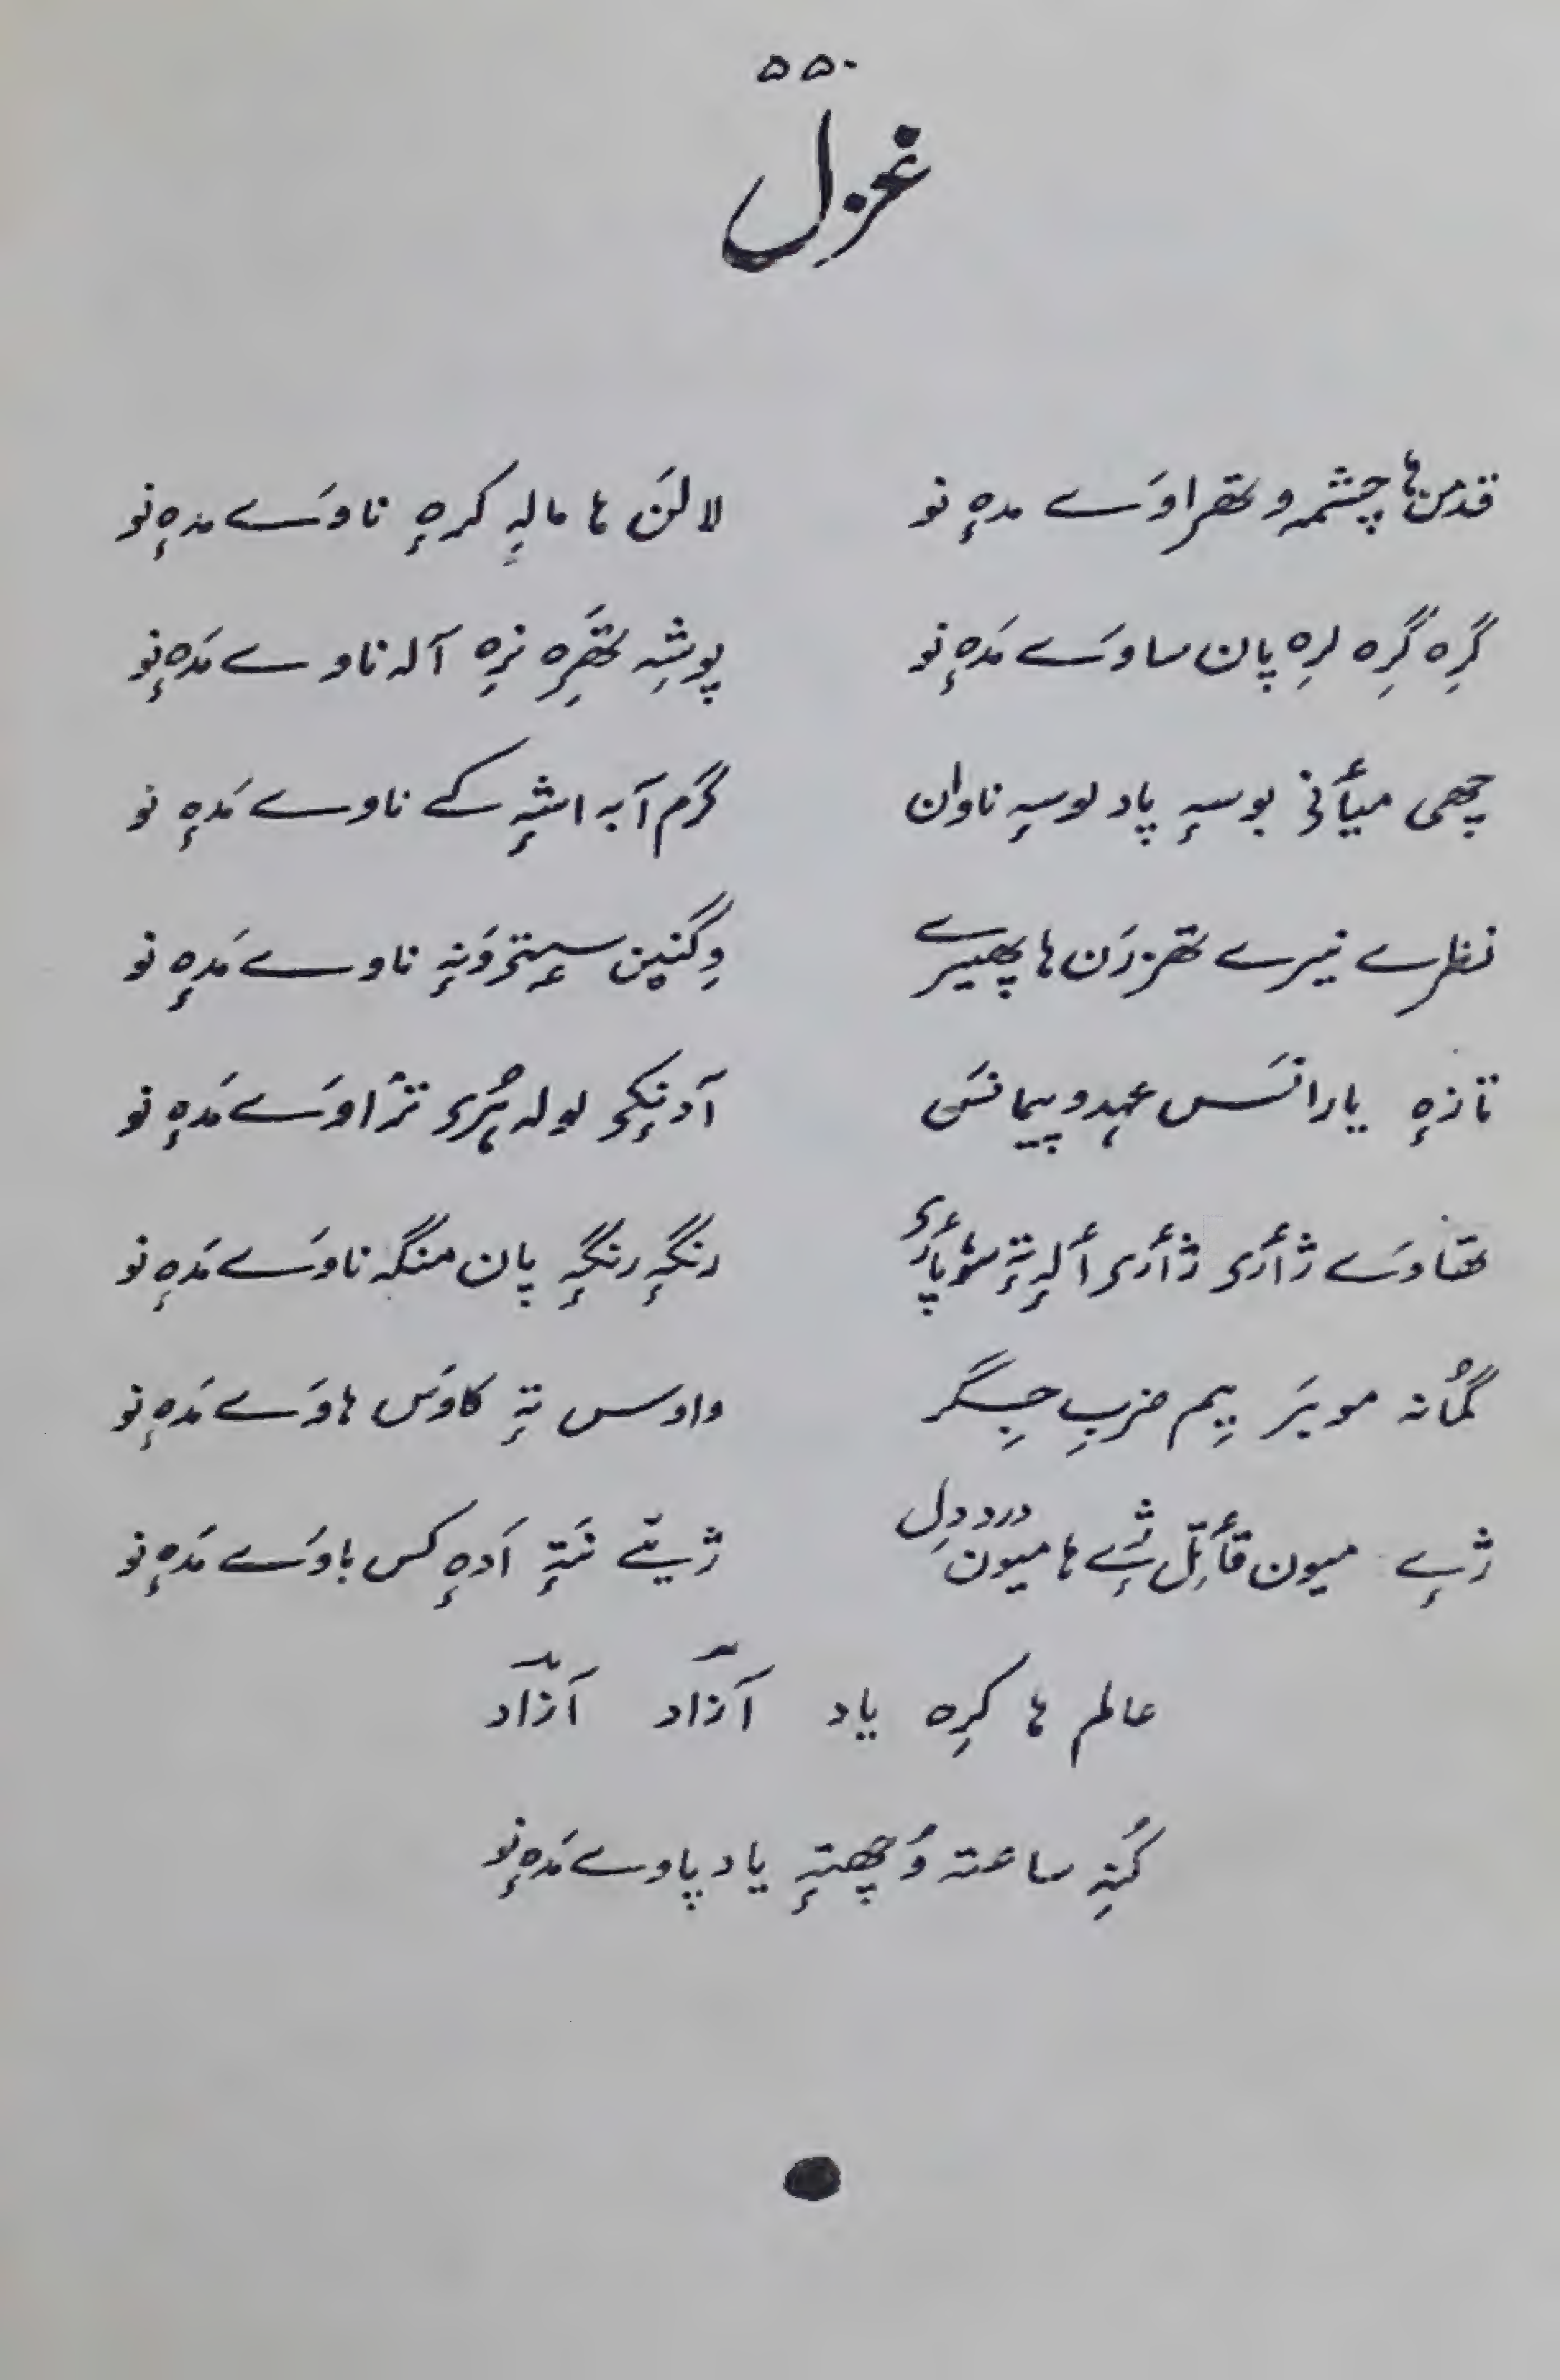 ۵۵۰
غزل
قدمن ہا چشمہ وتھراوَے مدہٕ نو لالَن ہا مالہٕ کرہٕ ناوَے مدہٕ نو
گرِہ گرِہ لرِہ پان ساوَے مَدہٕ نو پوشہِ تھَرِہ نرِہ آلہ ناوے مَدہٕ نو
چھی میأنی بوسہٕ پاد لوسہٕ ناوان گرم آبہ اشہٕ کے ناوے مَدہٕ نو
نظرے نیرے تھزرَن ہا پھیرے وِگنیٖن سیٖتی وَنہٕ ناوے مَدہٕ نو
تازہٕ یارانَس عہد و پیمانَس آدنٕکی لولہ پُری ترٛاوَے مَدہٕ نو
تھاوَے ژأری ژأری ألہٕ تہٕ سوٚپأری رنگہٕ رنگہٕ پان منگہ ناوَے مَدہٕ نو
گمُانہ مویَر پیم ضربِ جِگر واوس تہٕ کاوَس ہاوَے مَدہٕ نو
ژےٕ میون قأتِل ژےٕ ہا میون دردِ دل ژےٚ نَتہٕ اَدہٕ کس باوَے مَدہٕ نو
عالم ہا کرِہ یاد آزاد آزاد
کُنہِ ساعتہ وُچھتہٕ یاد پاوے مَدہٕ نو